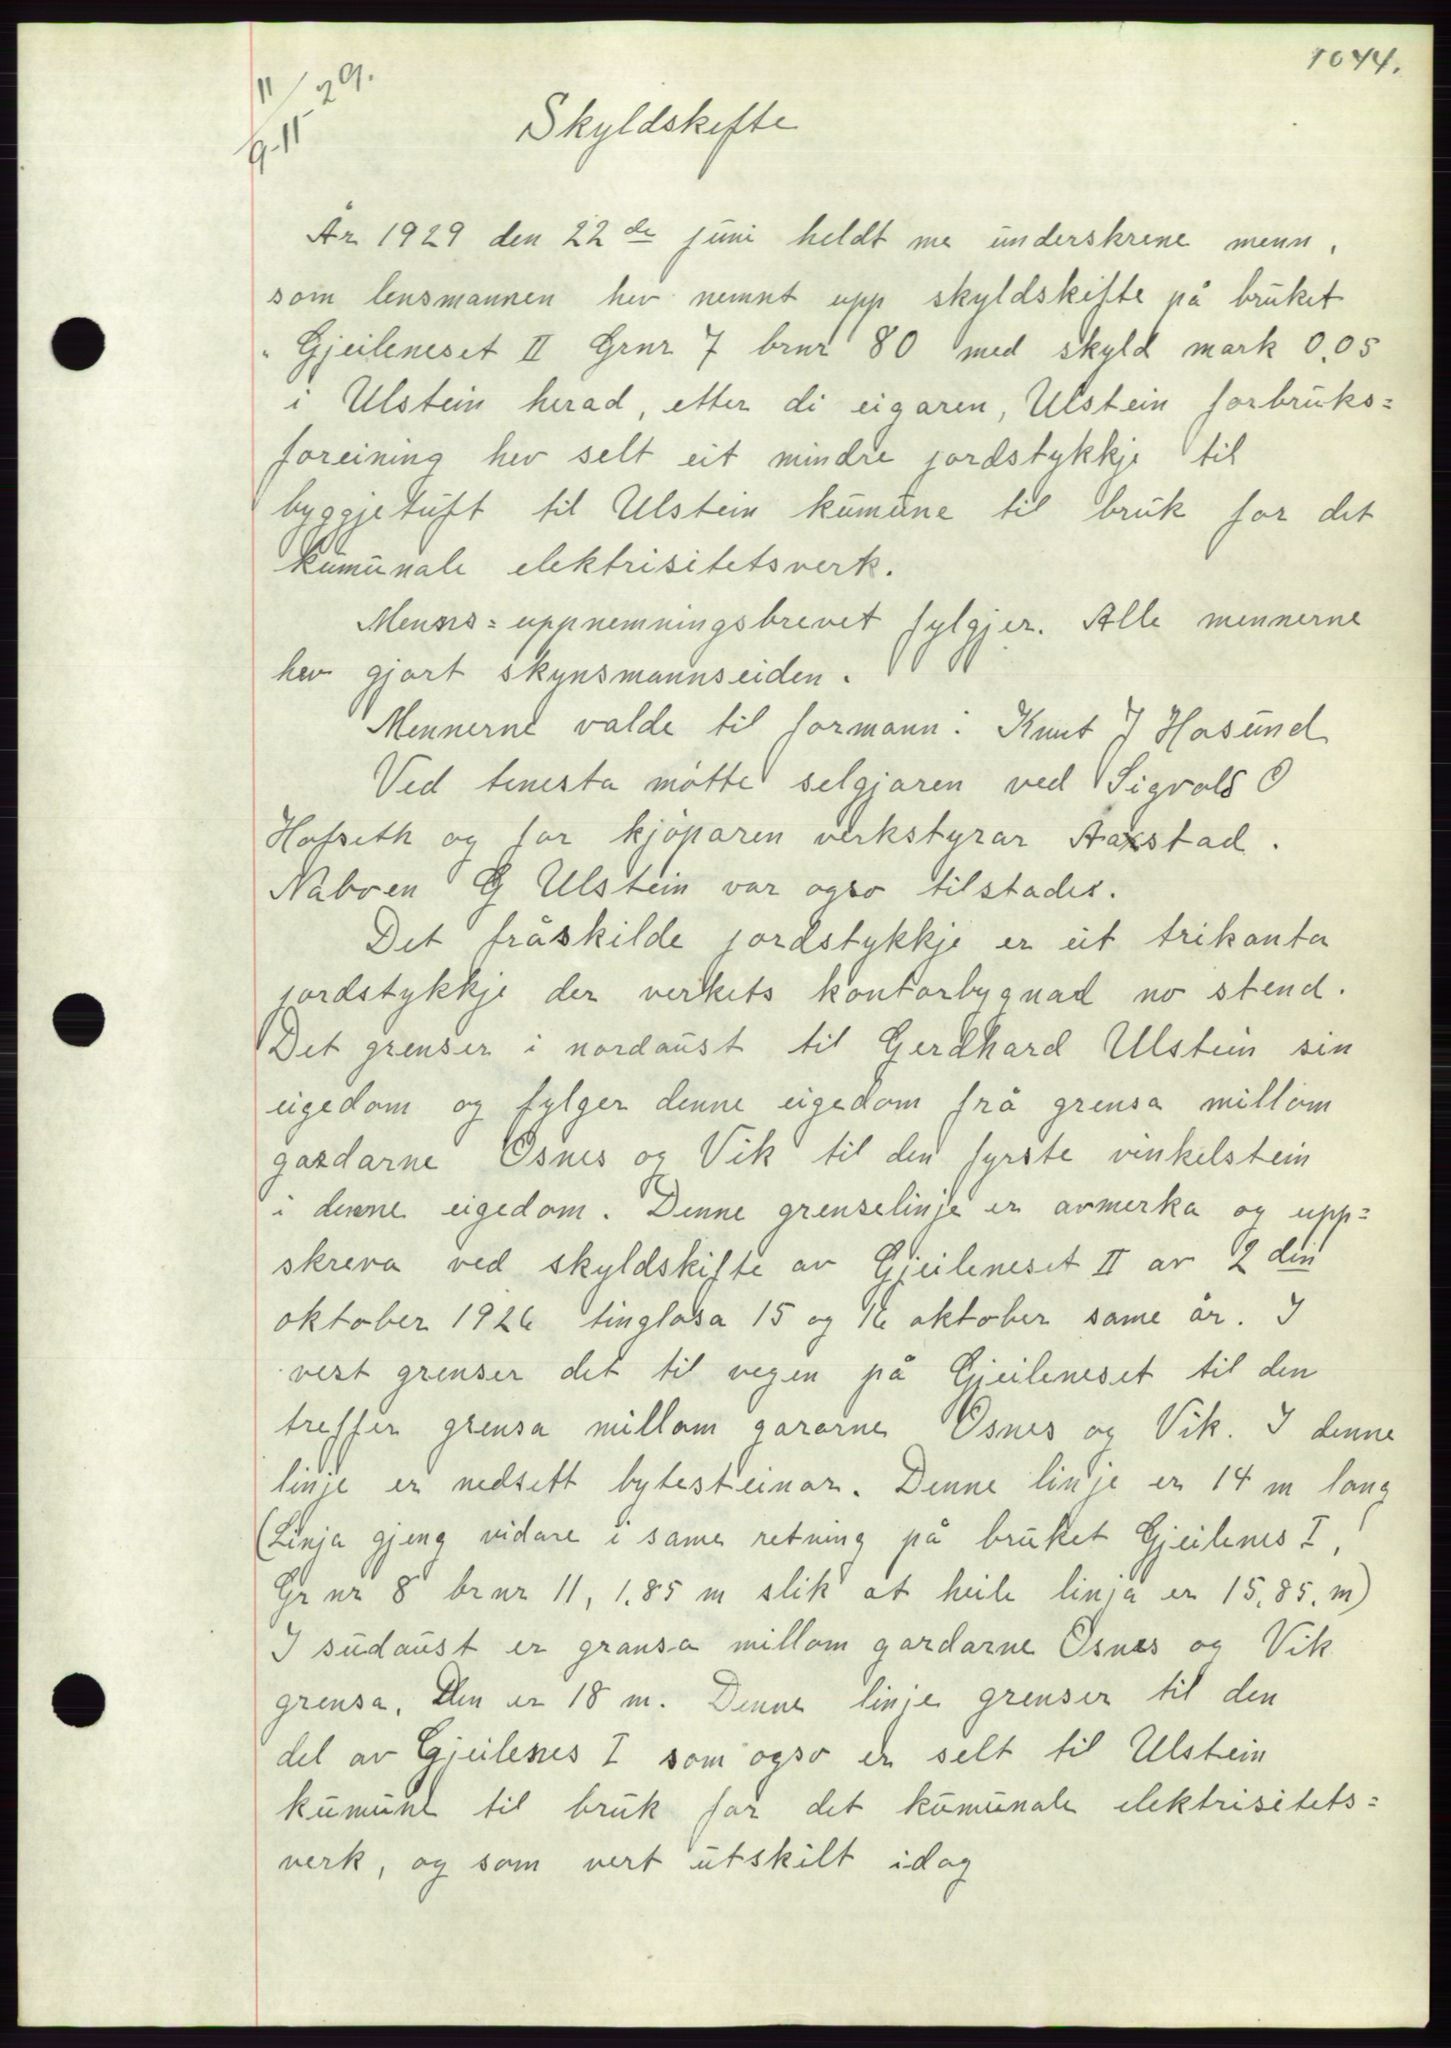 1044.
11/9-11-29.
Skyldskifte
År 1929 den 22de juni heldt me underskrene menn,
som lensmannen hev nemnt upp skyldskifte på bruket
"Gjeileneset II Grnr 7 brnr 80 med skyld mark 0,05
i Ulstein herad, etter di eigaren, Ulstein forbruks=
foreining hev selt eit mindre jordstykkje til
byggjetuft til Ulstein kumune til bruk for det
kumunale elektrisitetsverk.
Menns=uppnemningsbrevet fylgjer. Alle mennerne
hev gjort skynsmannseiden.
Mennerne valde til formann: Knut J Hasund
Ved tenesta møtte selgjaren ved Sigvald O
Hofseth og for kjøparen verkstyrar Aaxstad.
Naboen G Ulstein var ogso tilstades.
Det fråskilde jordstykkje er eit trikanta
jordstykkje der verkets kontorbygnad no stend.
Det grenser i nordaust til Gerdhard Ulstein sin
eigedom og fylger denne eigedom frå grensa millom
gardarne Osnes og Vik til den fyrste vinkelstein
i denne eigedom. Denne grenselinje er avmerka og upp=
skreva ved skyldskifte av Gjeileneset II av 2 din
oktober 1926 tinglosa 15 og 16 oktober same år. I
vest grenser det til vegen på Gjeileneset til den
treffer grensa millom gararne Osnes og Vik. I denne
linje er nedsett bytesteinar. Denne linje er 14 m lang
(Linja gjeng vidare i same retning på bruket Gjeilenes I,
Gr nr 8 br nr 11, 1.85 m slik at heile linja er 15,85. m)
I sudaust er gransa millom gardarne Osnes og Vik
grensa. Den er 18 m. Denne linje grenser til den
del av Gjeilenes I som ogso er selt til Ulstein
kumune til bruk for det kumunale elektrisitets=
verk, og som vert utskilt idag